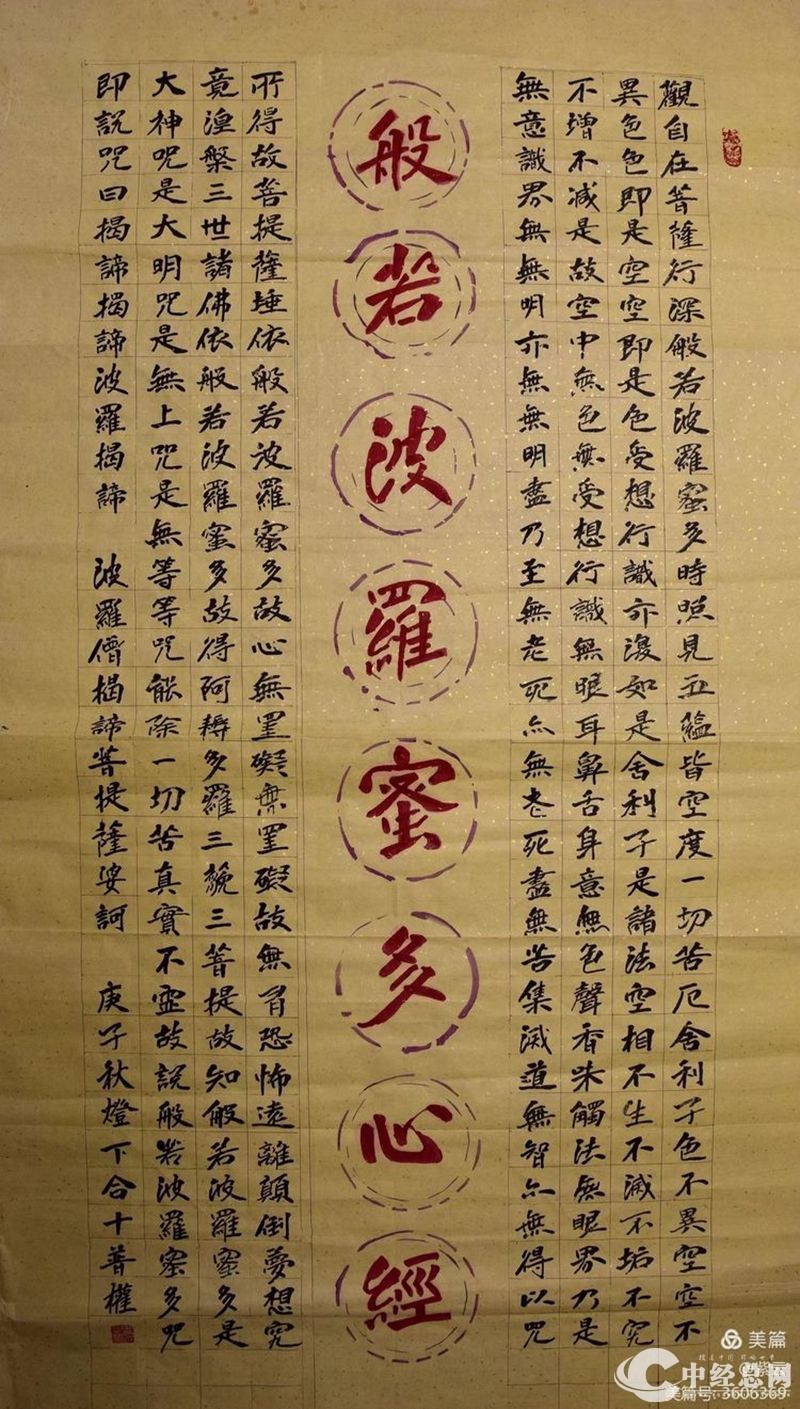 觀自在菩薩行深般若波羅蜜多時照見五蘊皆空度一切苦厄舍利子色不異空空不
異色色即是空空即是色受想行識亦復如是舍利子是諸法空相不生不滅不垢不究
不增不减是故空中無色無受想行識無眼耳鼻舌身意無色聲香味觸法無眼界乃是
無意識界無無明亦無無明盡乃至無老死亦無老死盡無苦集滅道無智亦無得以咒
般若波羅蜜多心經
所得故菩提薩埵依般若波羅蜜多故心無罣礙無罣礙故無有恐怖遠離顛倒夢想究
竟湼槃三世諸佛依般若波羅蜜多故得阿耨多羅三藐三菩提故知般若波羅蜜多是
大神咒是大明咒是無上咒是無等等咒能除一切苦真實不虛故說般若波羅蜜多咒
即説咒曰揭諦揭諦波羅揭諦 波羅僧揭諦菩提薩婆訶 庚子秋燈下合十普權
美篇
中经总网
美篇号: 3606369